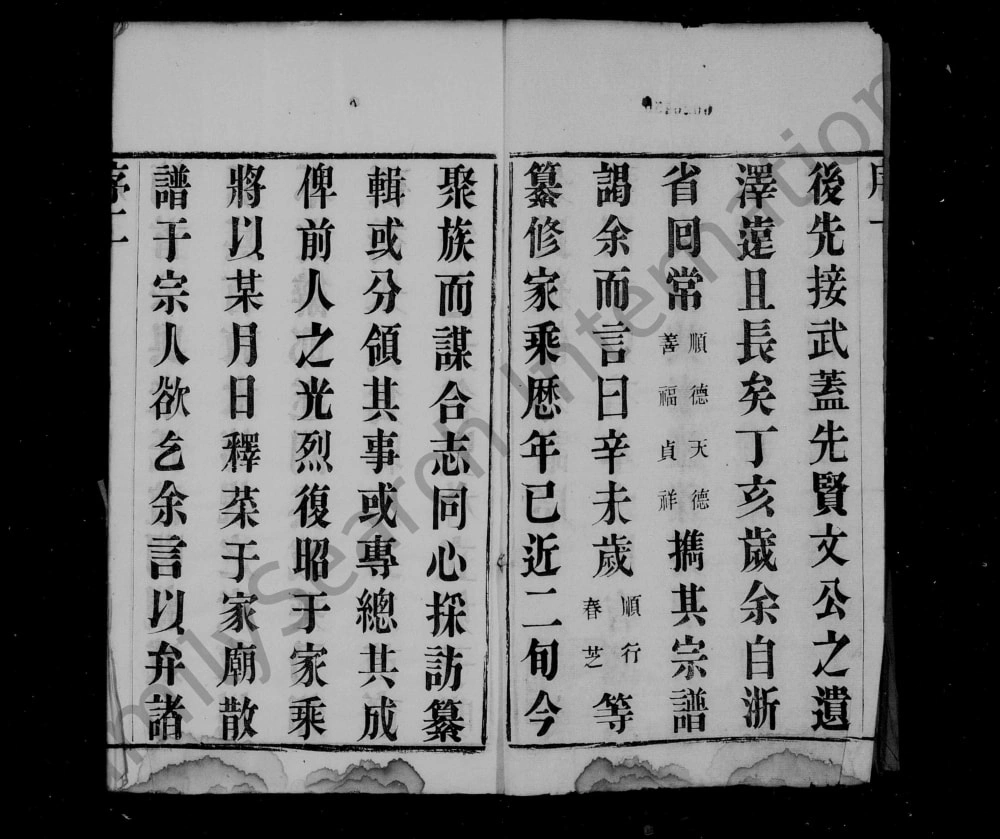 後先接武蓋先賢文公之遺
澤遠且長矣丁亥歲余自浙
省回常順德天德善福貞祥擕其宗譜
謁余而言曰辛未歲順行春芝等
纂修家乘歷年已近二旬今
聚族而謀合志同心採訪纂
輯或分領其事或專總其成
俾前人之光烈復昭于家乘
將以某月日釋菜于家廟散
譜于宗人欲乞余言以弁諸
序二
FamilySearch International